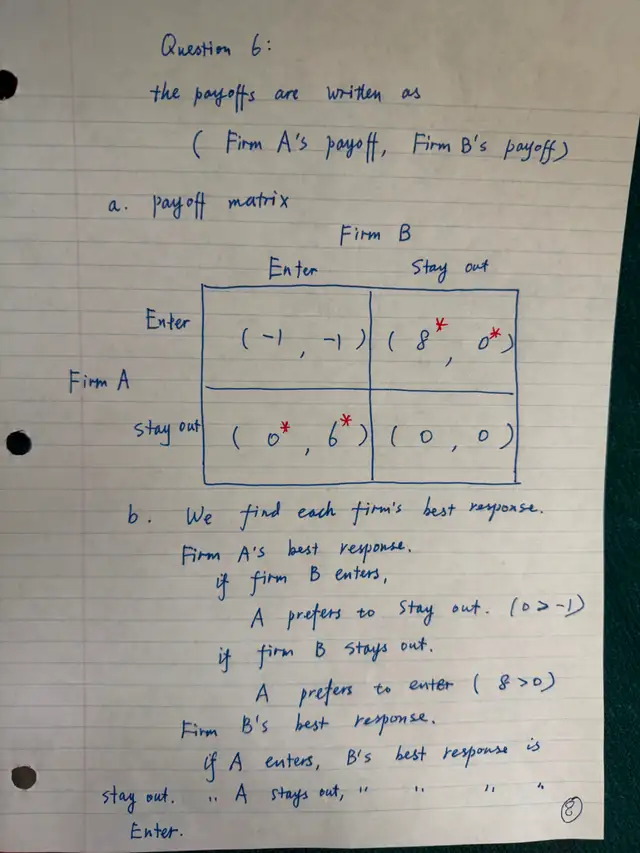 Question 6:
the payoffs are written as
( Firm A's payoff, Firm B's payoff)
a. payoff matrix
Firm B
Enter Stay out
Enter (-1, -1) (8*, 0*)
Firm A
Stay out (0*, 6*) (0, 0)
b. We find each firm's best response.
Firm A's best response.
if firm B enters,
A prefers to stay out. (0 > -1)
if firm B stays out.
A prefers to enter ( 8 > 0)
Firm B's best response.
if A enters, B's best response is
stay out. " A stays out, " " " "
Enter.
8